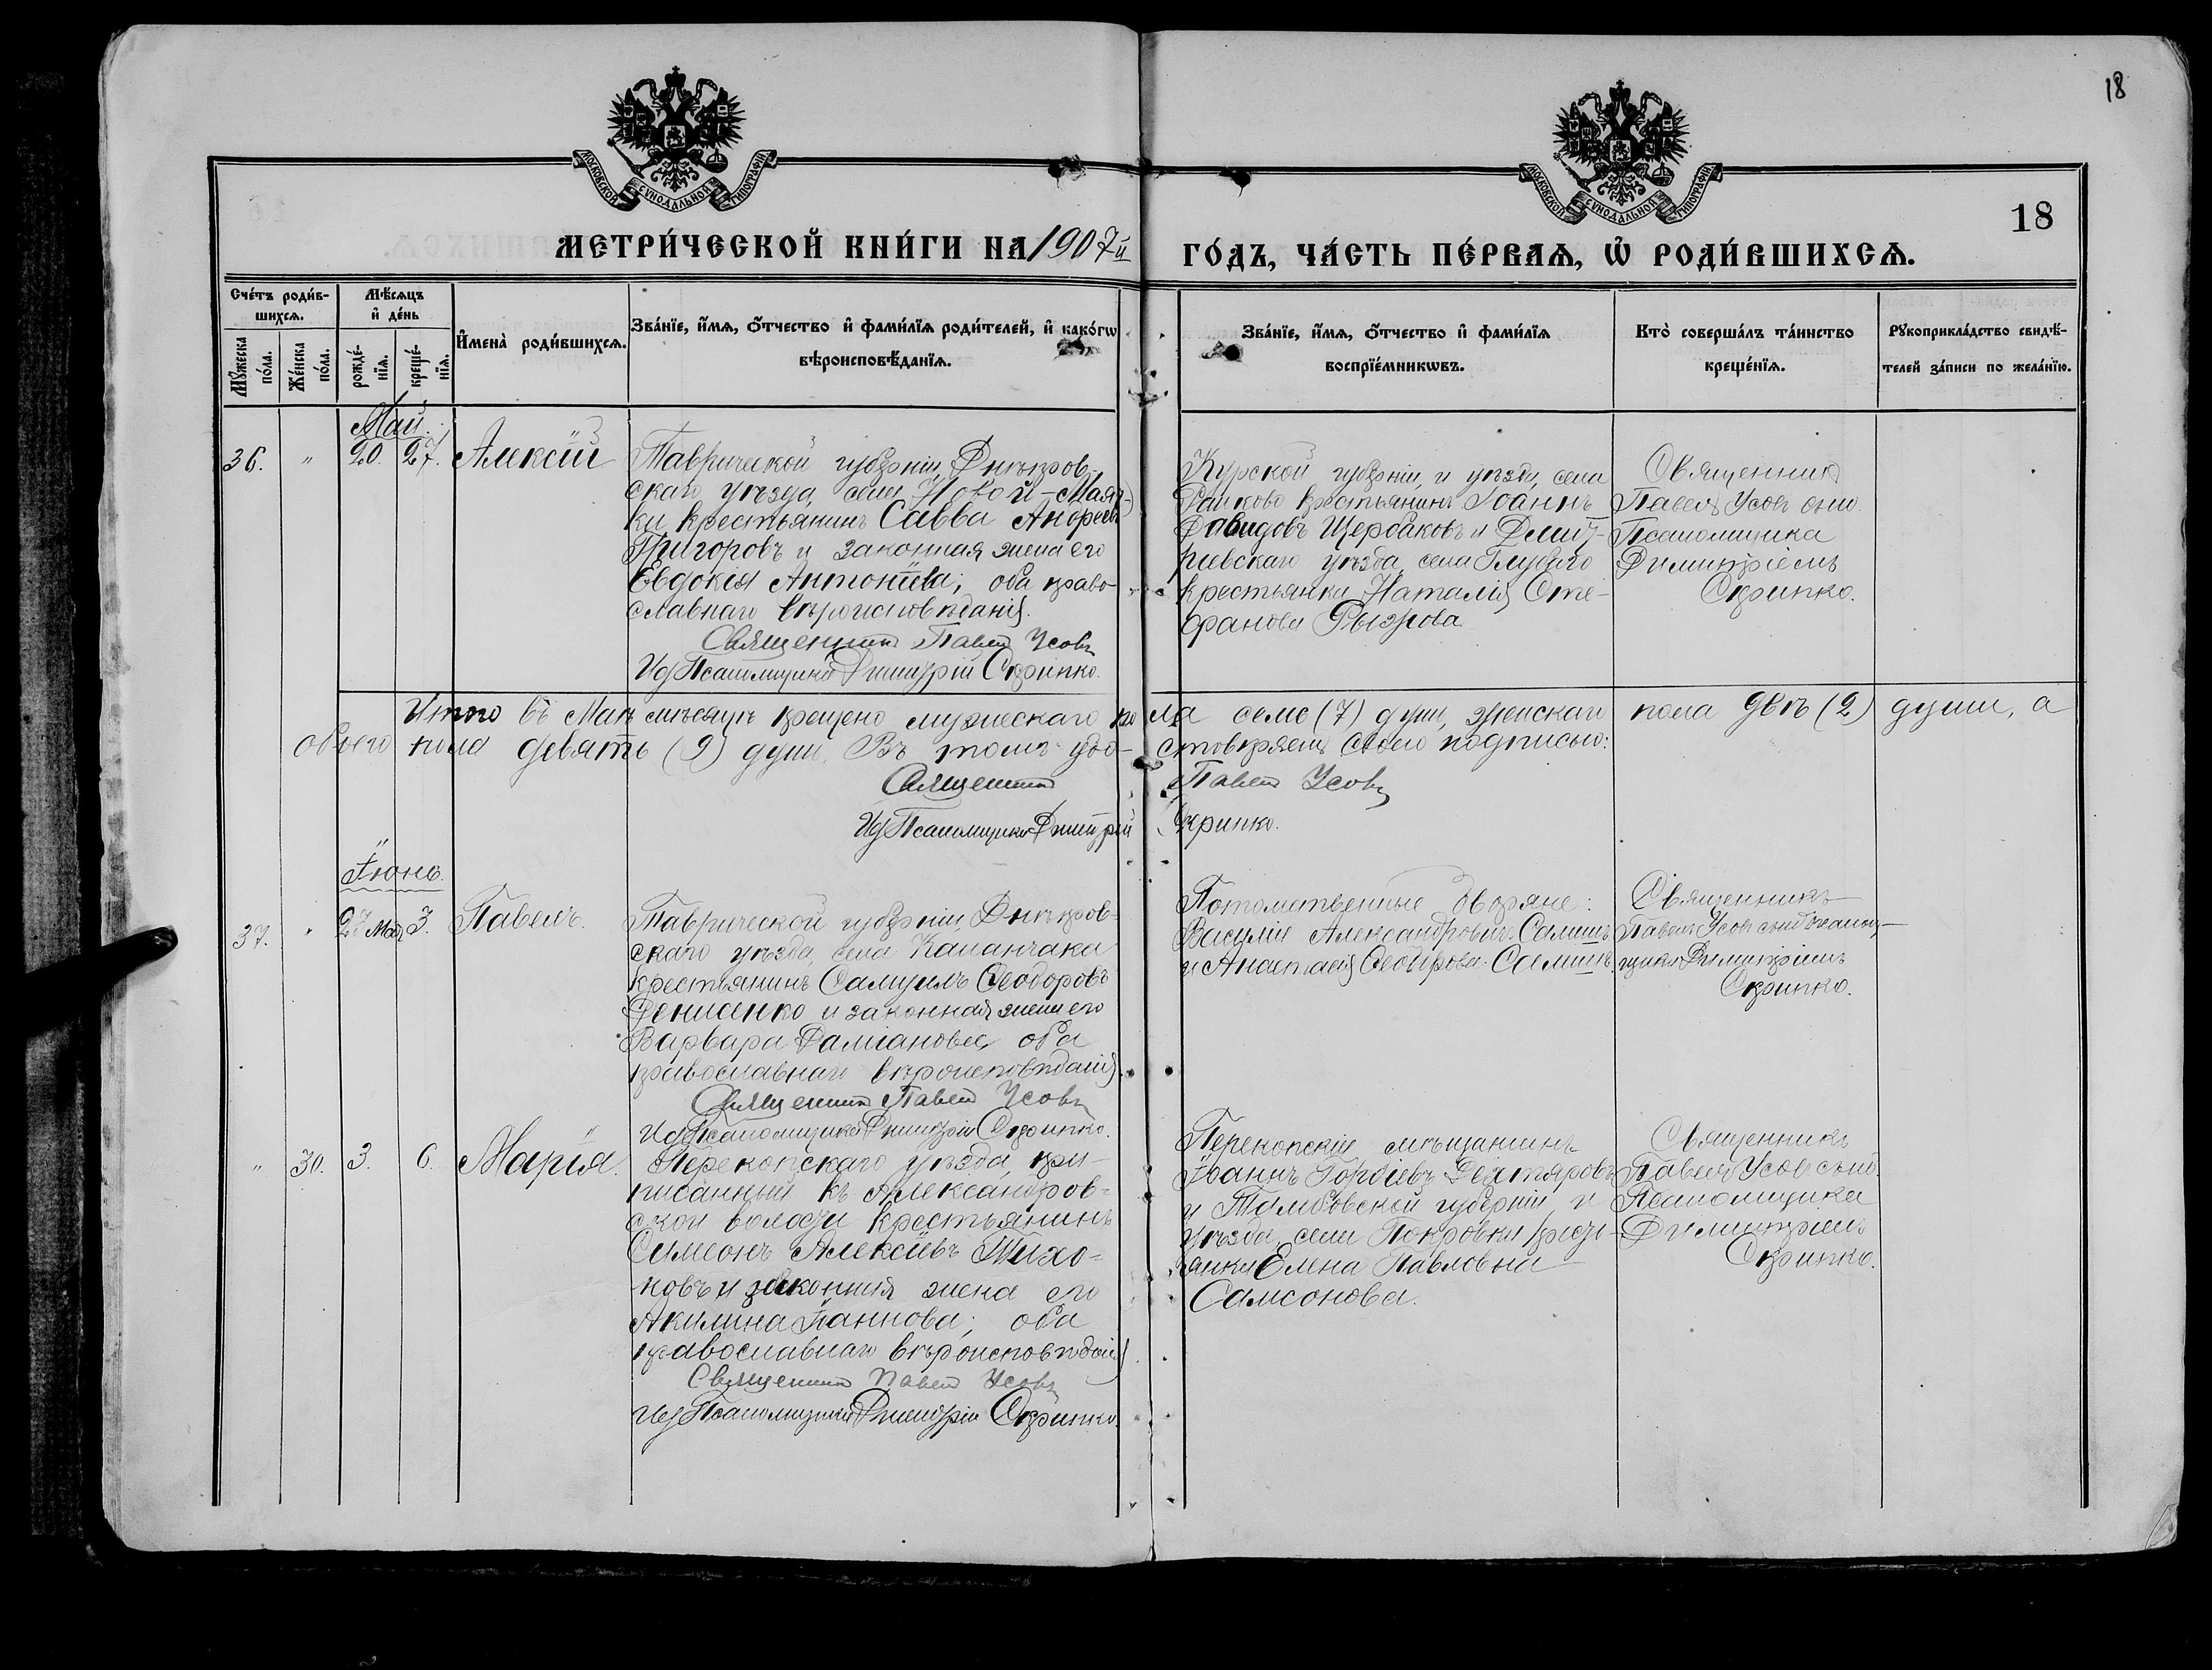 18
МОСКОВСКОЙ СУНОДАЛЬНОЙ ТИПОГРАФІИ
МОСКОВСКОЙ СУНОДАЛЬНОЙ ТИПОГРАФІИ
18
МЕТРИ́ЧЕСКОЙ КНИ́ГИ НА 1907й ГО́ДЪ, ЧА́СТЬ ПЕ́РВАѦ, Ѡ҆ РОДИ́ВШИХСѦ.
Сче́тъ роди́в-
шихсѧ.
Мꙋ́жеска
по́ла.
Же́нска
по́ла.
Мѣ́сѧцъ
и҆ де́нь
рожде́-
нїѧ.
креще́-
нїѧ.
И҆мена̀ роди́вшихсѧ.
Зва́нїе, и҆́мѧ, ѻ҆́тчество и҆ фами́лїѧ роди́телей, и҆ како́гѡ
вѣроисповѣ́данїѧ.
Зва́нїе, и҆́мѧ, ѻ҆́тчество и҆ фами́лїѧ
воспрїе́мникѡвъ.
Кто̀ соверша́лъ та́инство
креще́нїѧ.
Рꙋкоприкла́дство свидѣ́-
телей за́писи по жела́нїю.
Май.
36. " 20. 27. Алексій
Таврической губерніи, Днѣпров-
скаго уѣзда, села Новой-Маяч-
ки крестьянинъ Савва Андреевъ
Григоровъ и законная жена его
Евдокія Антоніева; оба право-
славнаго вѣроисповѣданія.
Священникъ Павелъ Усовъ
Ид Псаломщика Димитрій Скрипко.
Курской губерніи, и уѣзда, села
крестьянинъ Іоаннъ
Давидовъ Щербаковъ и Дмит-
ріевскаго уѣзда, села
крестьянка Наталія Сте-
фанова
Священникъ
Павелъ Усовъ съ и.д.
Псаломщика
Димитріемъ
Скрипко.
Итого въ Маѣ мѣсяцѣ крещено мужескаго пола семь (7) душъ, женскаго пола двѣ (2) души, а
обоего пола девять (9) душъ. Въ томъ удо-стовѣряемъ своею подписью:
Священникъ Павелъ Усовъ
Ид Псаломщика Димитрій Скрипко.
Іюнь.
37. " 27 Мая 3. Павелъ.
Таврической губерніи, Днѣпров-
скаго уѣзда, села Каланчака
крестьянинъ Самуилъ Ѳеодоровъ
Денисенко и законная жена его
Варвара Даміанова, оба
православнаго вѣроисповѣданія.
Священникъ Павелъ Усовъ
Ид Псаломщика Димитрій Скрипко.
Потомственные дворяне:
Василій Александровичъ
и Анастасія Ѳеодорова
Священникъ
Павелъ Усовъ съ и.д. псалом-
щика Димитріемъ
Скрипко.
" 30. 3. 6. Марія.
Перекопскаго уѣзда, при-
писанный къ Александров-
ской волости крестьянинъ
Симеонъ Алексіевъ Тихо-
новъ и законная жена его
Акилина Іоаннова; оба
православнаго вѣроисповѣданія.
Священникъ Павелъ Усовъ
Ид Псаломщика Димитрій Скрипко.
Перекопскій мѣщанинъ
Іоаннъ Гордіевъ Дехтяровъ
и Тамбовской губерніи и
уѣзда, села Покровки крест-
янка Елена Павловна
Самсонова.
Священникъ
Павелъ Усовъ съ и.д.
Псаломщика
Димитріемъ
Скрипко.